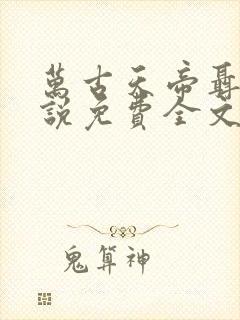 萬古天帝聶
說免費全文
鬼算神